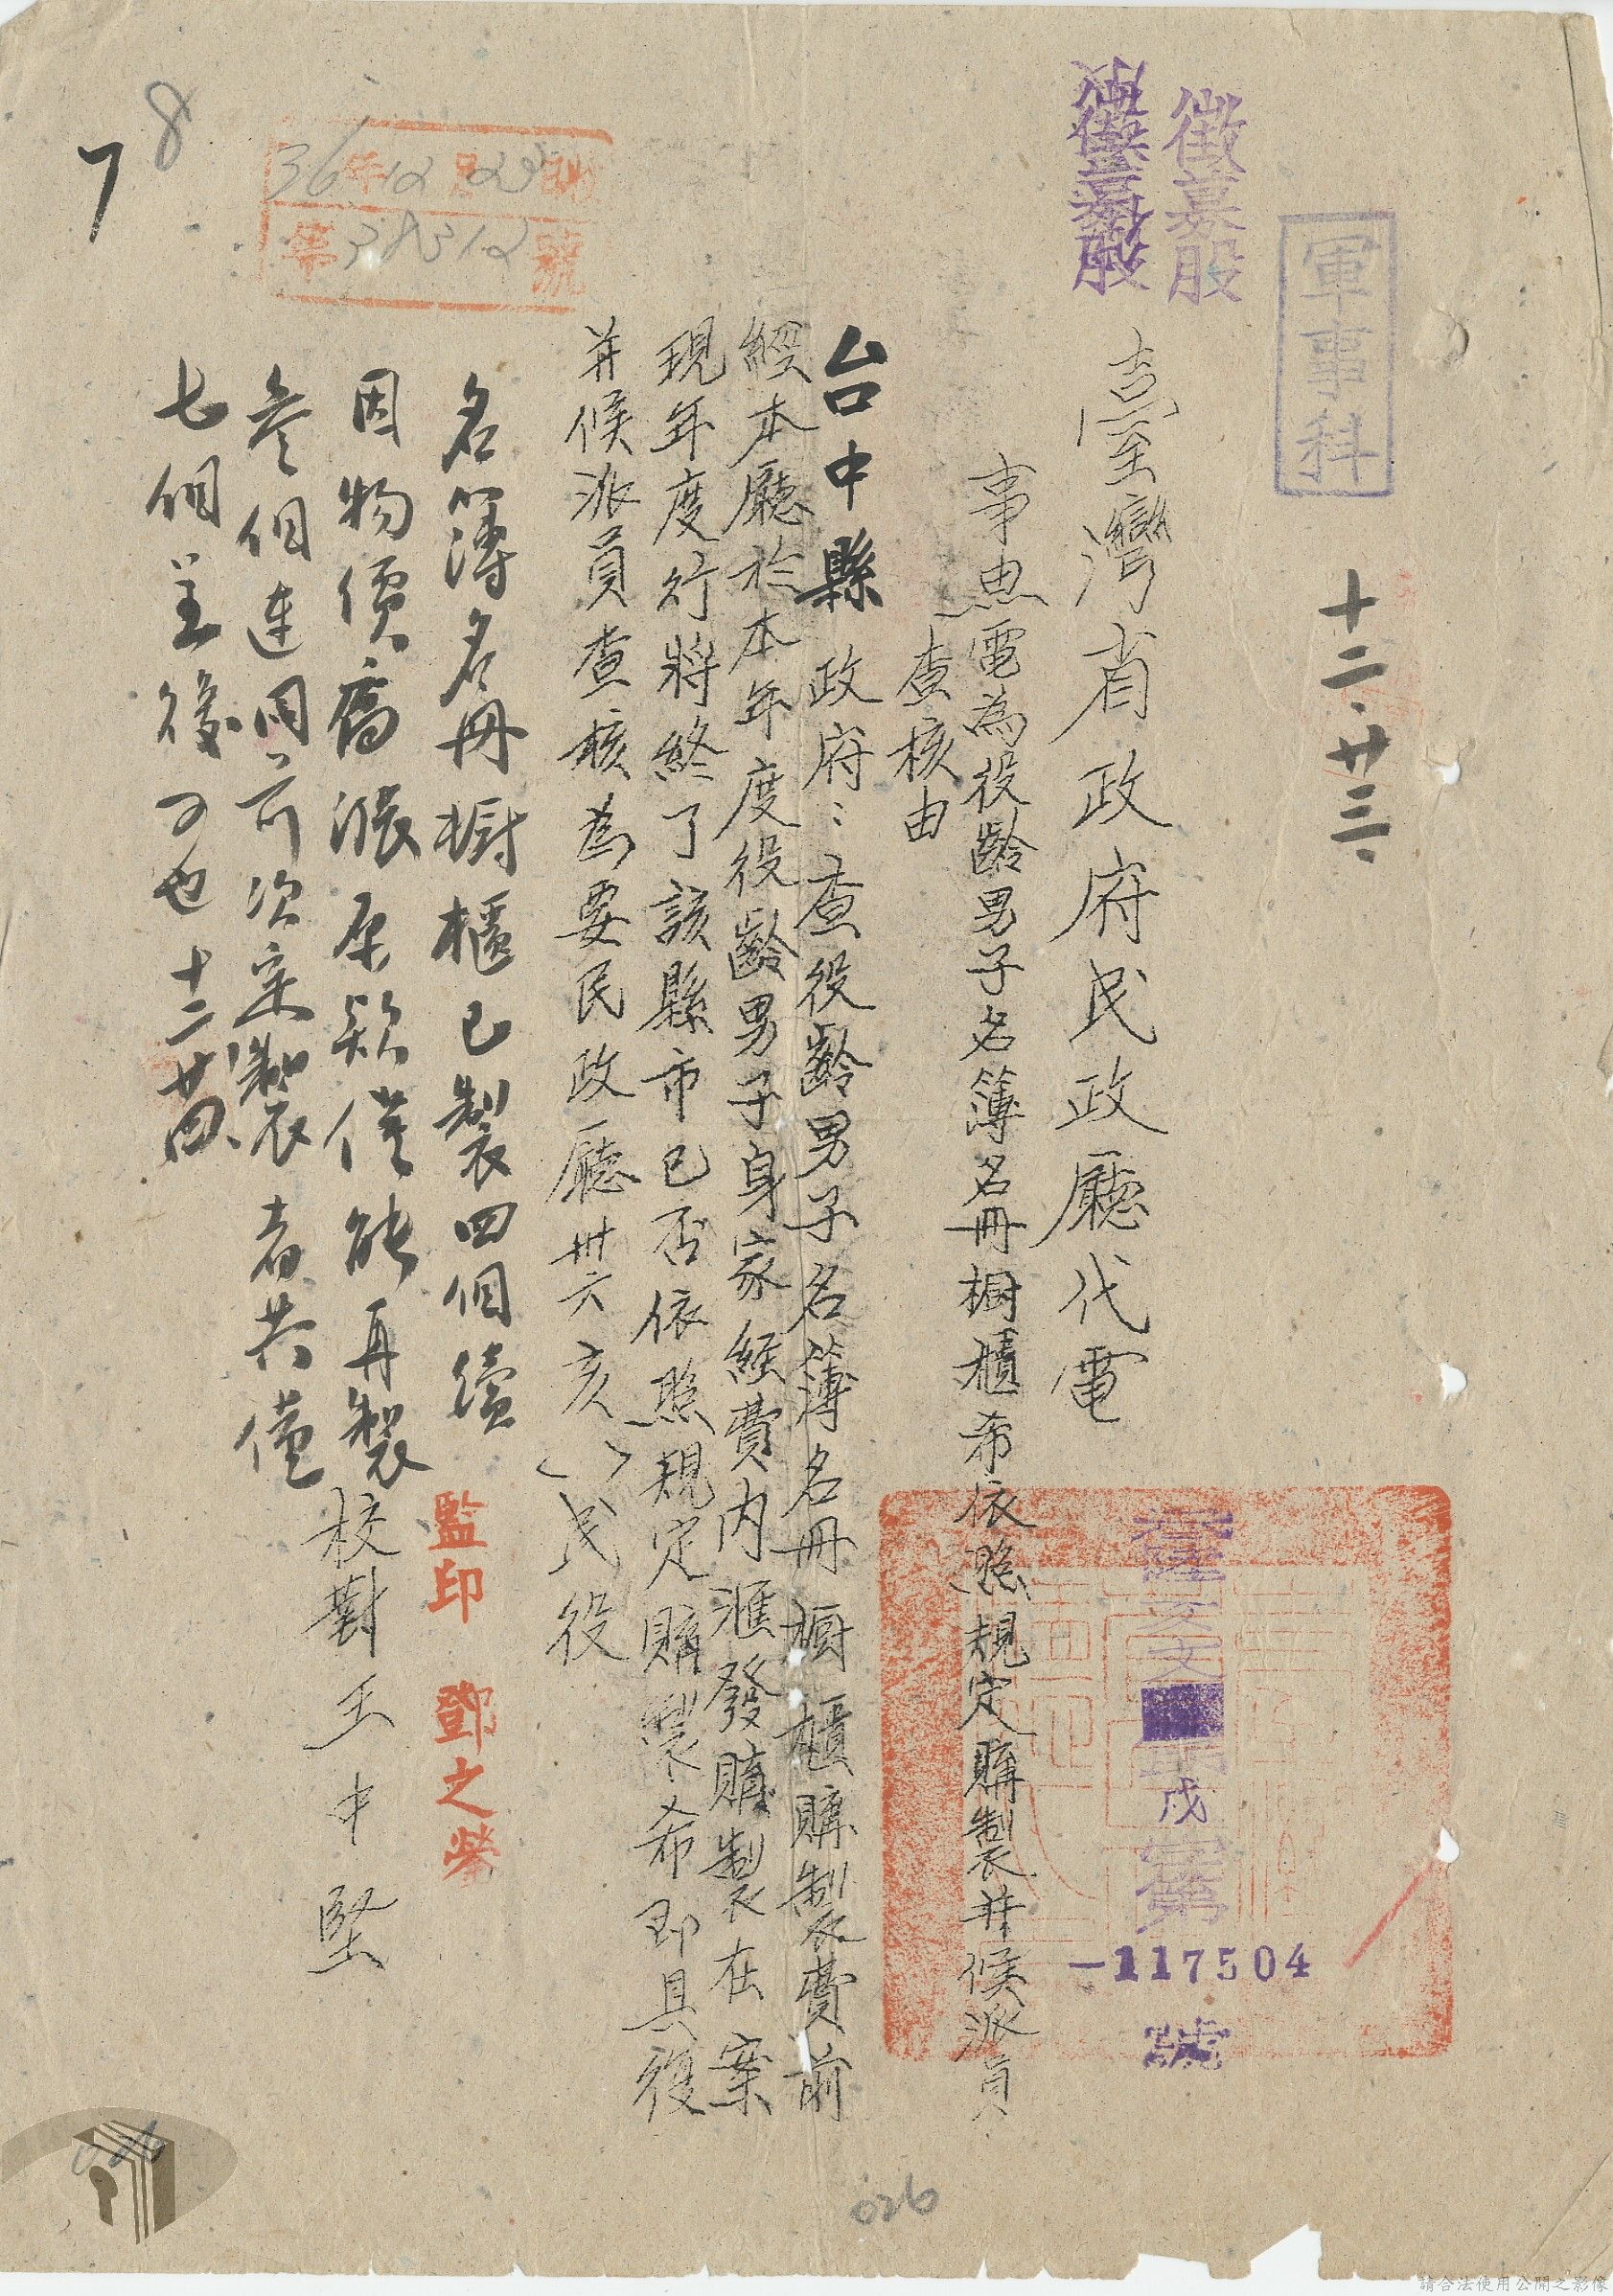 軍事科
徵募股
十二.廿三.
臺灣省政府民政廳代電
戌
117504
號
事由：電為役齡男子名簿名冊櫥櫃希依照規定購製并候派員
查核由
台中縣政府：查役齡男子名簿名冊櫥櫃購製費前
經本廳於本年度役齡男子身家經費內滙發購製在案
現年度行將終了該縣市已否依照規定購製希即具復
并候派員查核為要民政廳卅六亥( )民役
名簿名冊櫥櫃已製四個續
因物價高漲原款僅能再製
叁個連同前次定製者共僅
七個呈後可也 十二廿四
監印 鄧之榮
校對 王中堅
36年12月23日收
第38312號
7
8
026
026
請合法使用公開之影像